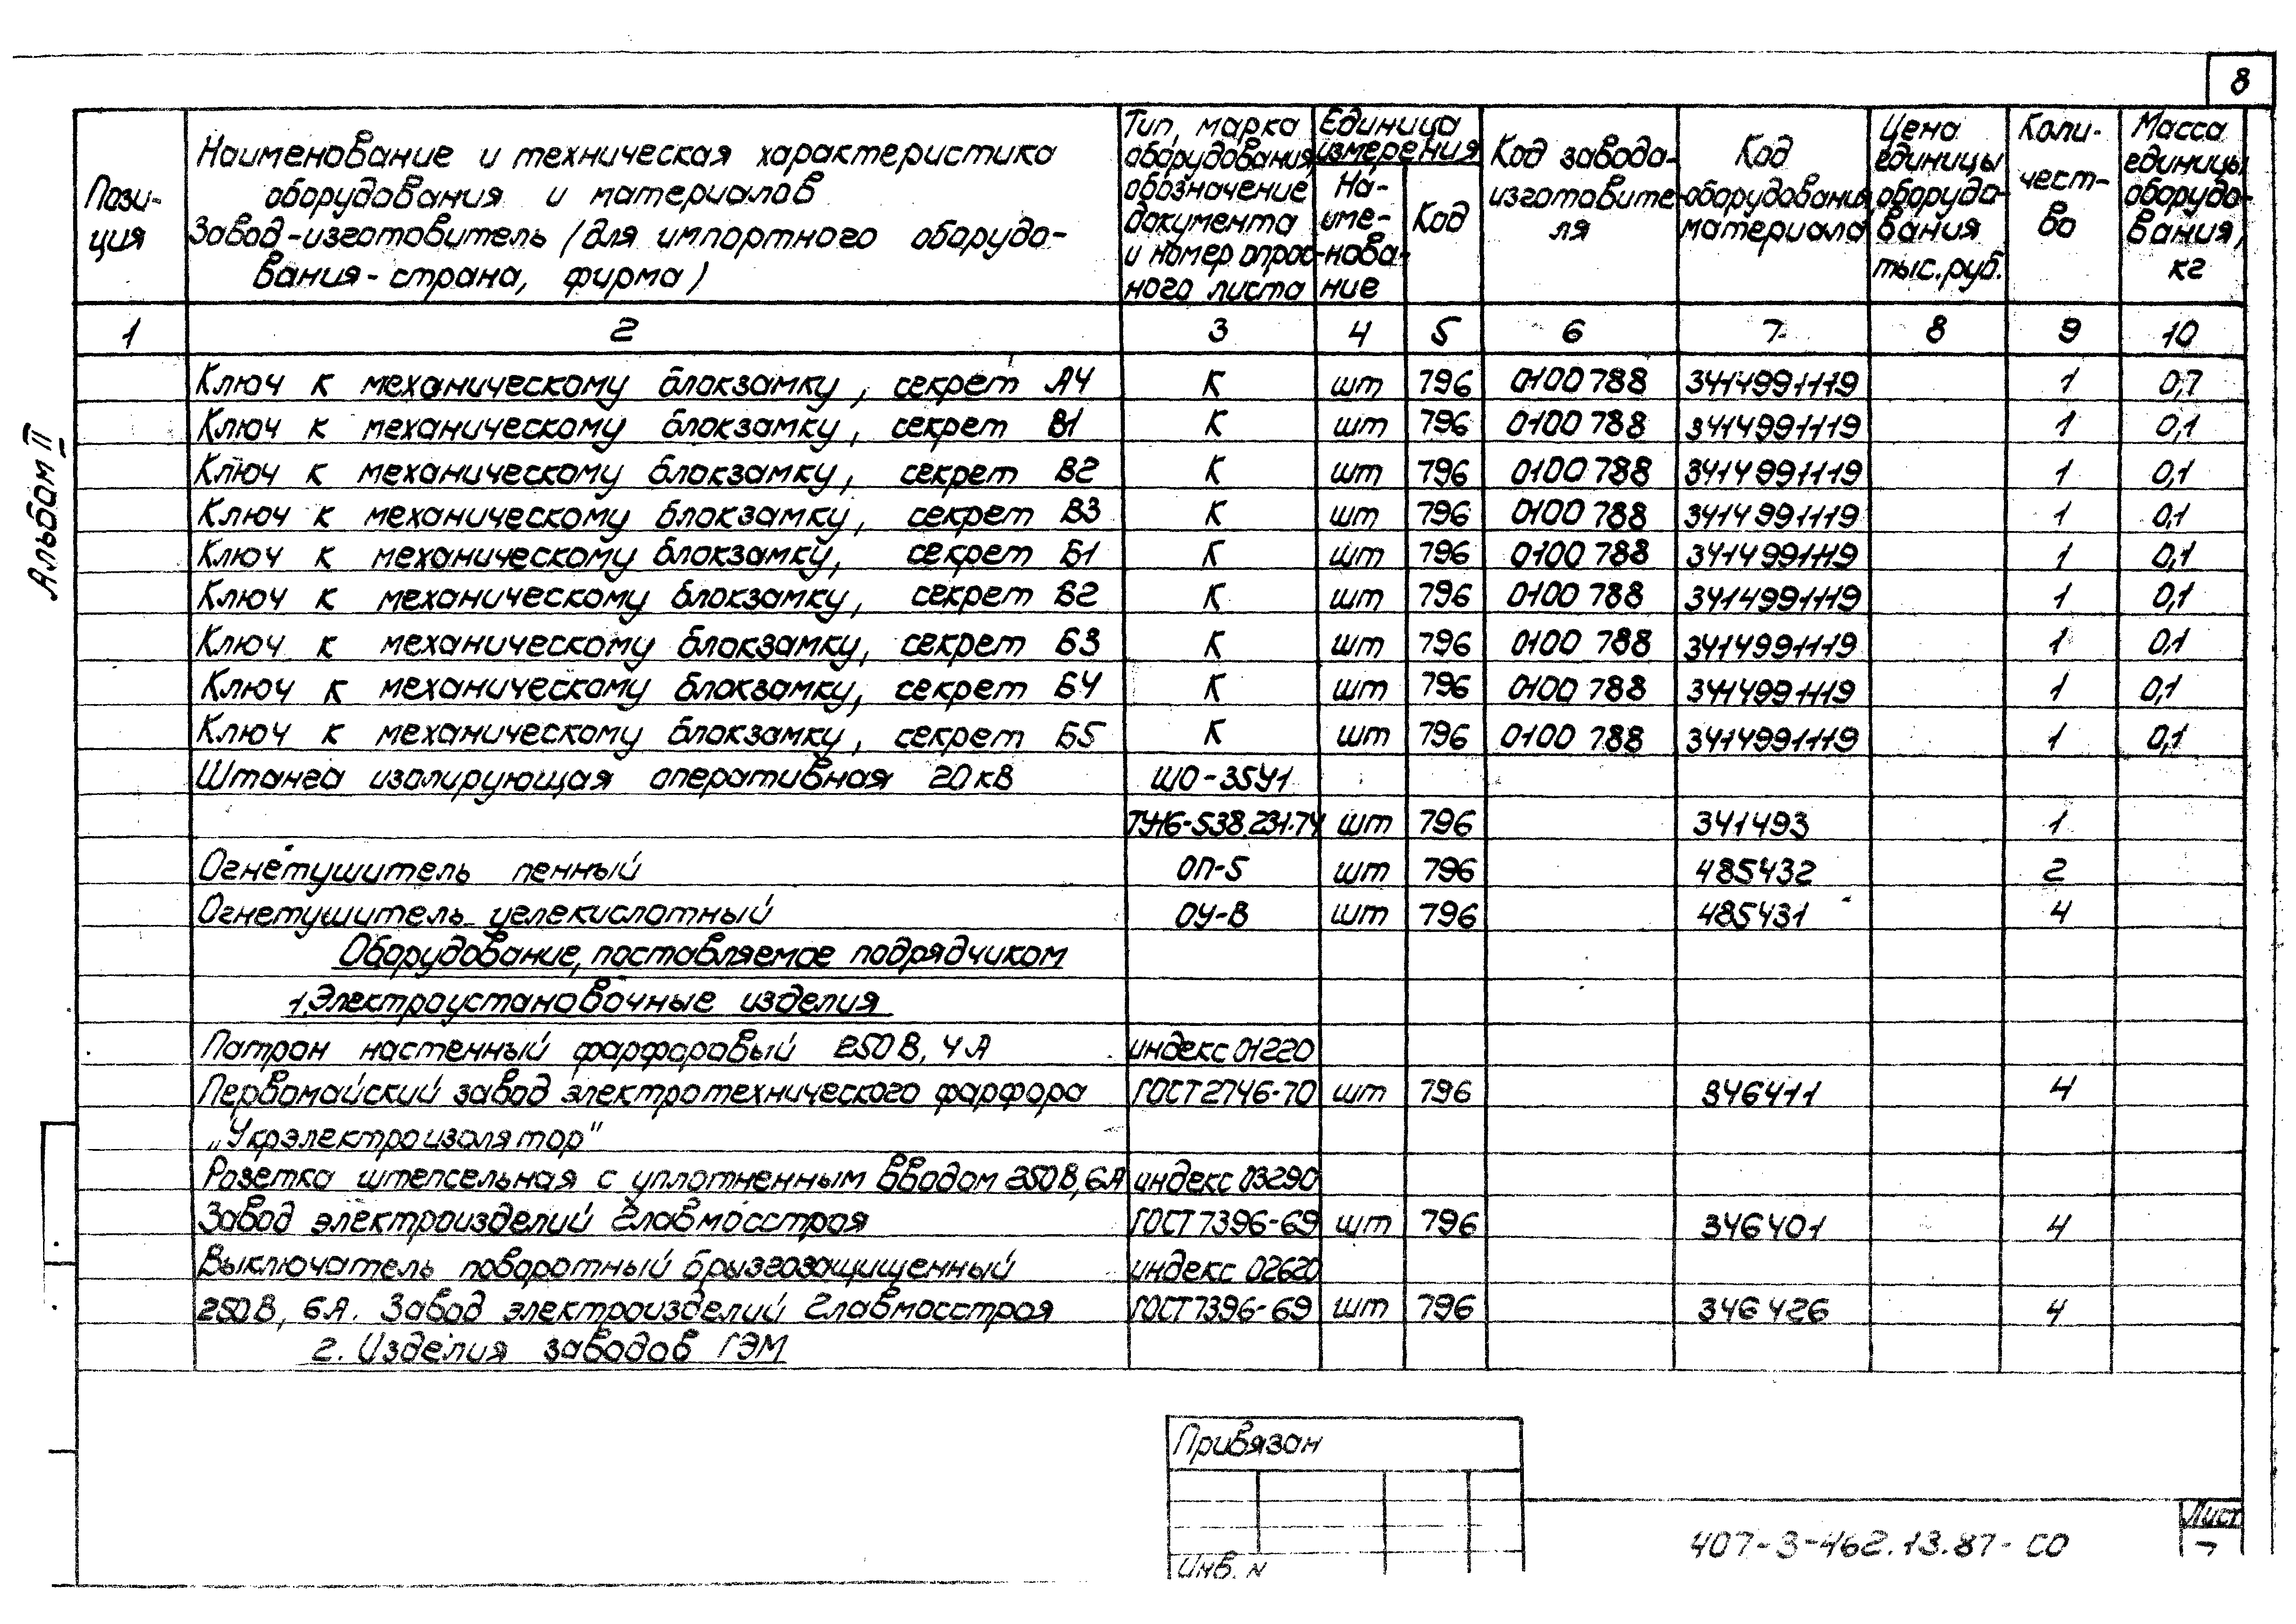 8
Альбом II
Пози-
ция
Наименование и техническая характеристика
оборудования и материалов
Завод-изготовитель (для импортного оборудо-
вания - страна, фирма)
Тип, марка
оборудования,
обозначение
документа
и номер опрос-
ного листа
Единица
измерения
На-
име-
нова-
ние
Код
Код завода-
изготовите-
ля
Код
оборудования,
материала
Цена
единицы
оборудо-
вания
тыс. руб.
Коли-
чест-
во
Масса
единицы
оборудо-
вания,
кг
1 2 3 4 5 6 7 8 9 10
Ключ к механическому блокзамку, секрет А4 К шт 796 0100788 3414991119 1 0,7
Ключ к механическому блокзамку, секрет В1 К шт 796 0100788 3414991119 1 0,1
Ключ к механическому блокзамку, секрет В2 К шт 796 0100788 3414991119 1 0,1
Ключ к механическому блокзамку, секрет В3 К шт 796 0100788 3414991119 1 0,1
Ключ к механическому блокзамку, секрет Б1 К шт 796 0100788 3414991119 1 0,1
Ключ к механическому блокзамку, секрет Б2 К шт 796 0100788 3414991119 1 0,1
Ключ к механическому блокзамку, секрет Б3 К шт 796 0100788 3414991119 1 0,1
Ключ к механическому блокзамку, секрет Б4 К шт 796 0100788 3414991119 1 0,1
Ключ к механическому блокзамку, секрет Б5 К шт 796 0100788 3414991119 1 0,1
Штанга изолирующая оперативная 20кВ ШО-35У1
ТУ16-538.231-74 шт 796 341493 1
Огнетушитель пенный ОП-5 шт 796 485432 2
Огнетушитель углекислотный ОУ-8 шт 796 485431 4
Оборудование, поставляемое подрядчиком
1. Электроустановочные изделия
Патрон настенный фарфоровый 250В, 4А индекс 01220
Первомайский завод электротехнического фарфора ГОСТ 2746-70 шт 796 346411 4
„Укрэлектроизолятор"
Розетка штепсельная с уплотненным вводом 250В, 6А индекс 03290
Завод электроизделий Главмосстроя ГОСТ 7396-69 шт 796 346401 4
Выключатель поворотный брызгозащищенный индекс 02620
250В, 6А. Завод электроизделий Главмосстроя ГОСТ 7396-69 шт 796 346426 4
2. Изделия заводов ГЭМ
Привязан
Инв. N
407-3-462.13.87-СО
Лист
7